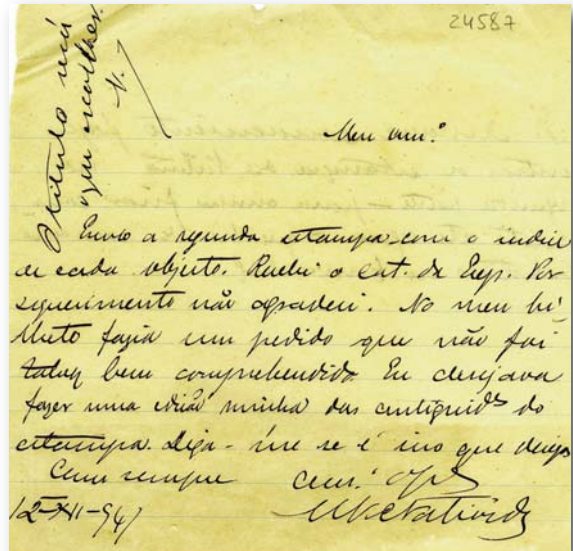 24587
O titulo
que escolher.
V.
Meu am.º
Envio a segunda estampa com o indice
de cada objecto. Recebi o cat. da Exp. Por
esquecimento não agradeci. No meu bi-
lhete fazia um pedido que não foi
talvez bem comprehendido. Eu desejava
fazer uma edição minha das antiguid.es do
estampa. Diga-me se é isso que deseja
Como sempre
12-XII-94